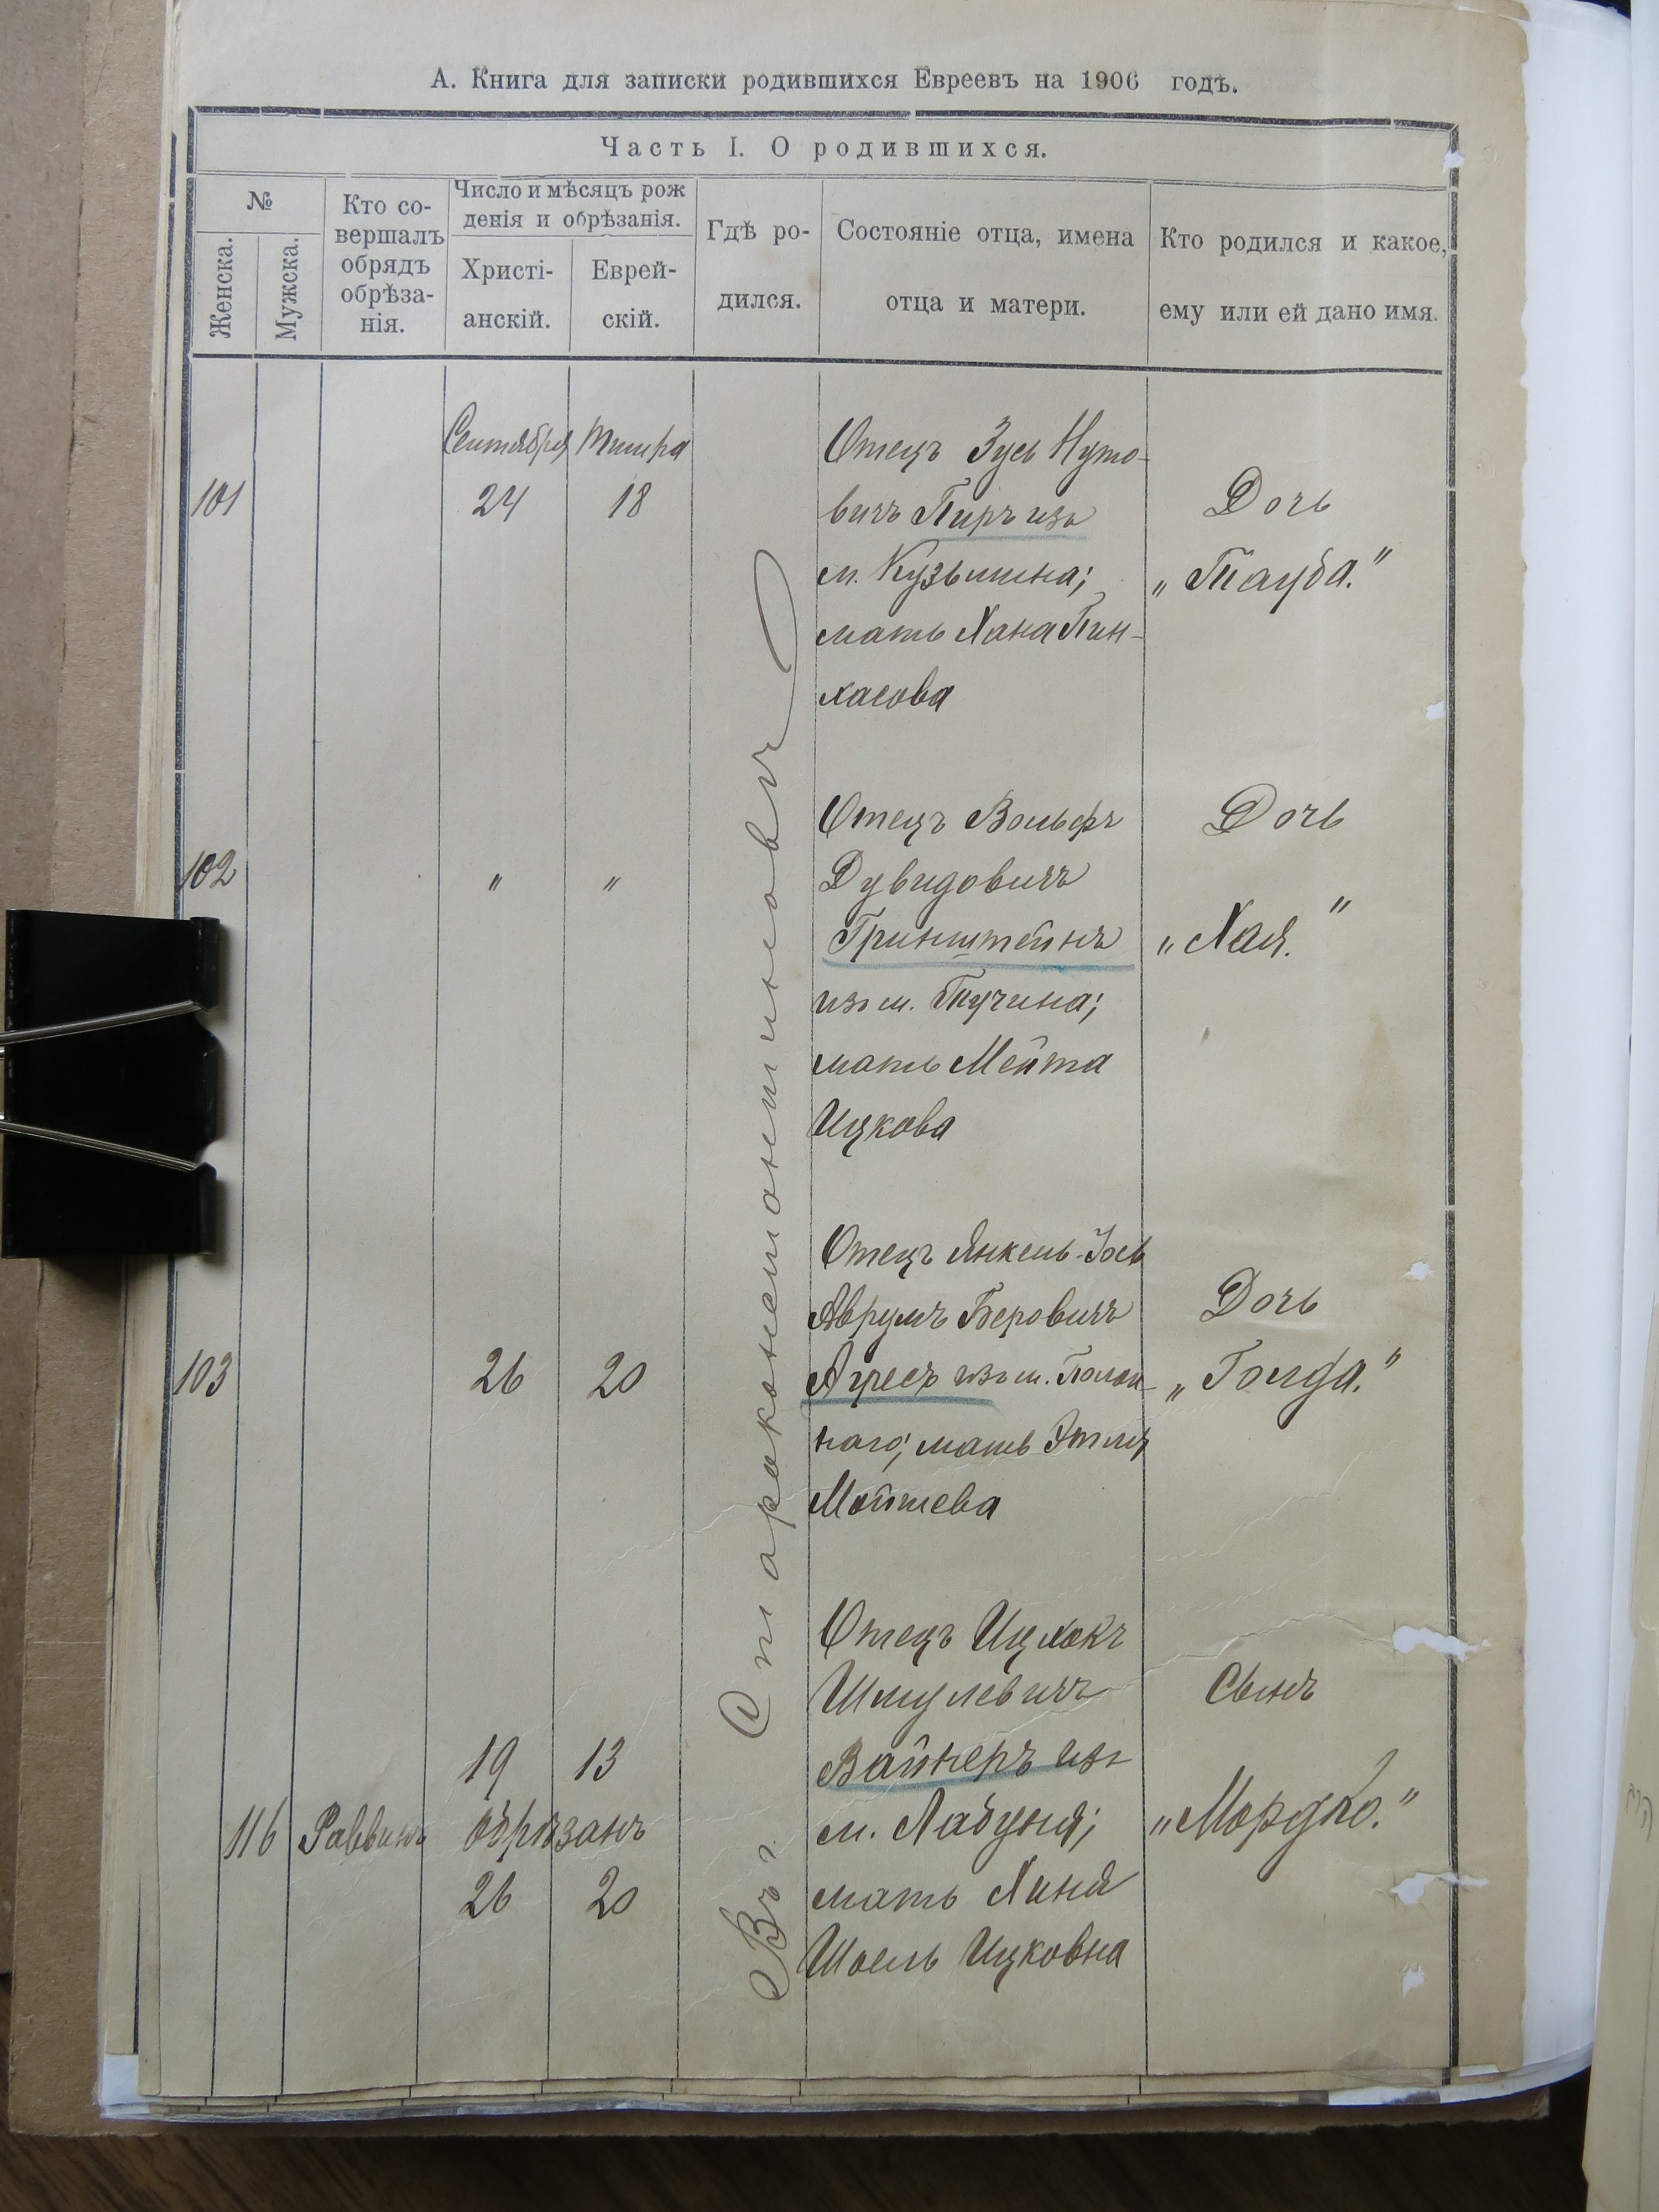 А. Книга для записки родившихся Евреевъ на 1906 годъ.
Часть I. О родившихся.
№
Женска.
Мужска.
Кто со-
вершалъ
обрядъ
обрѣза-
нія.
Число и мѣсяцъ рож
денія и обрѣзанія.
Христі-
анскій.
Еврей-
скій.
Гдѣ ро-
дился.
Состояніе отца, имена
отца и матери.
Кто родился и какое,
ему или ей дано имя.
Въ г. Староконстантиновѣ
Сентября Тишра
101 24 18
Отецъ Зусь Нуто-
вичъ Пиръ изъ
м. Кузьмина;
мать Хана Пин-
хасова
Дочь
„Тауба."
102 " "
Отецъ Вольфъ
Дувидовичъ
Гринштейнъ
изъ м. Тучина;
мать Мейта
Ицкова
Дочь
„Хая."
103 26 20
Отецъ Янкель-Іось
Аврумъ Беровичъ
изъ м. Полон-
наго; мать
Мойшева
Дочь
„Голда."
116 Раввинъ
19 13
обрѣзанъ
26 20
Отецъ Ицхокъ
Шмулевичъ
Вайнеръ изъ
м. Лабуня;
мать Хиня
Ицковна
Сынъ
„Мордко."